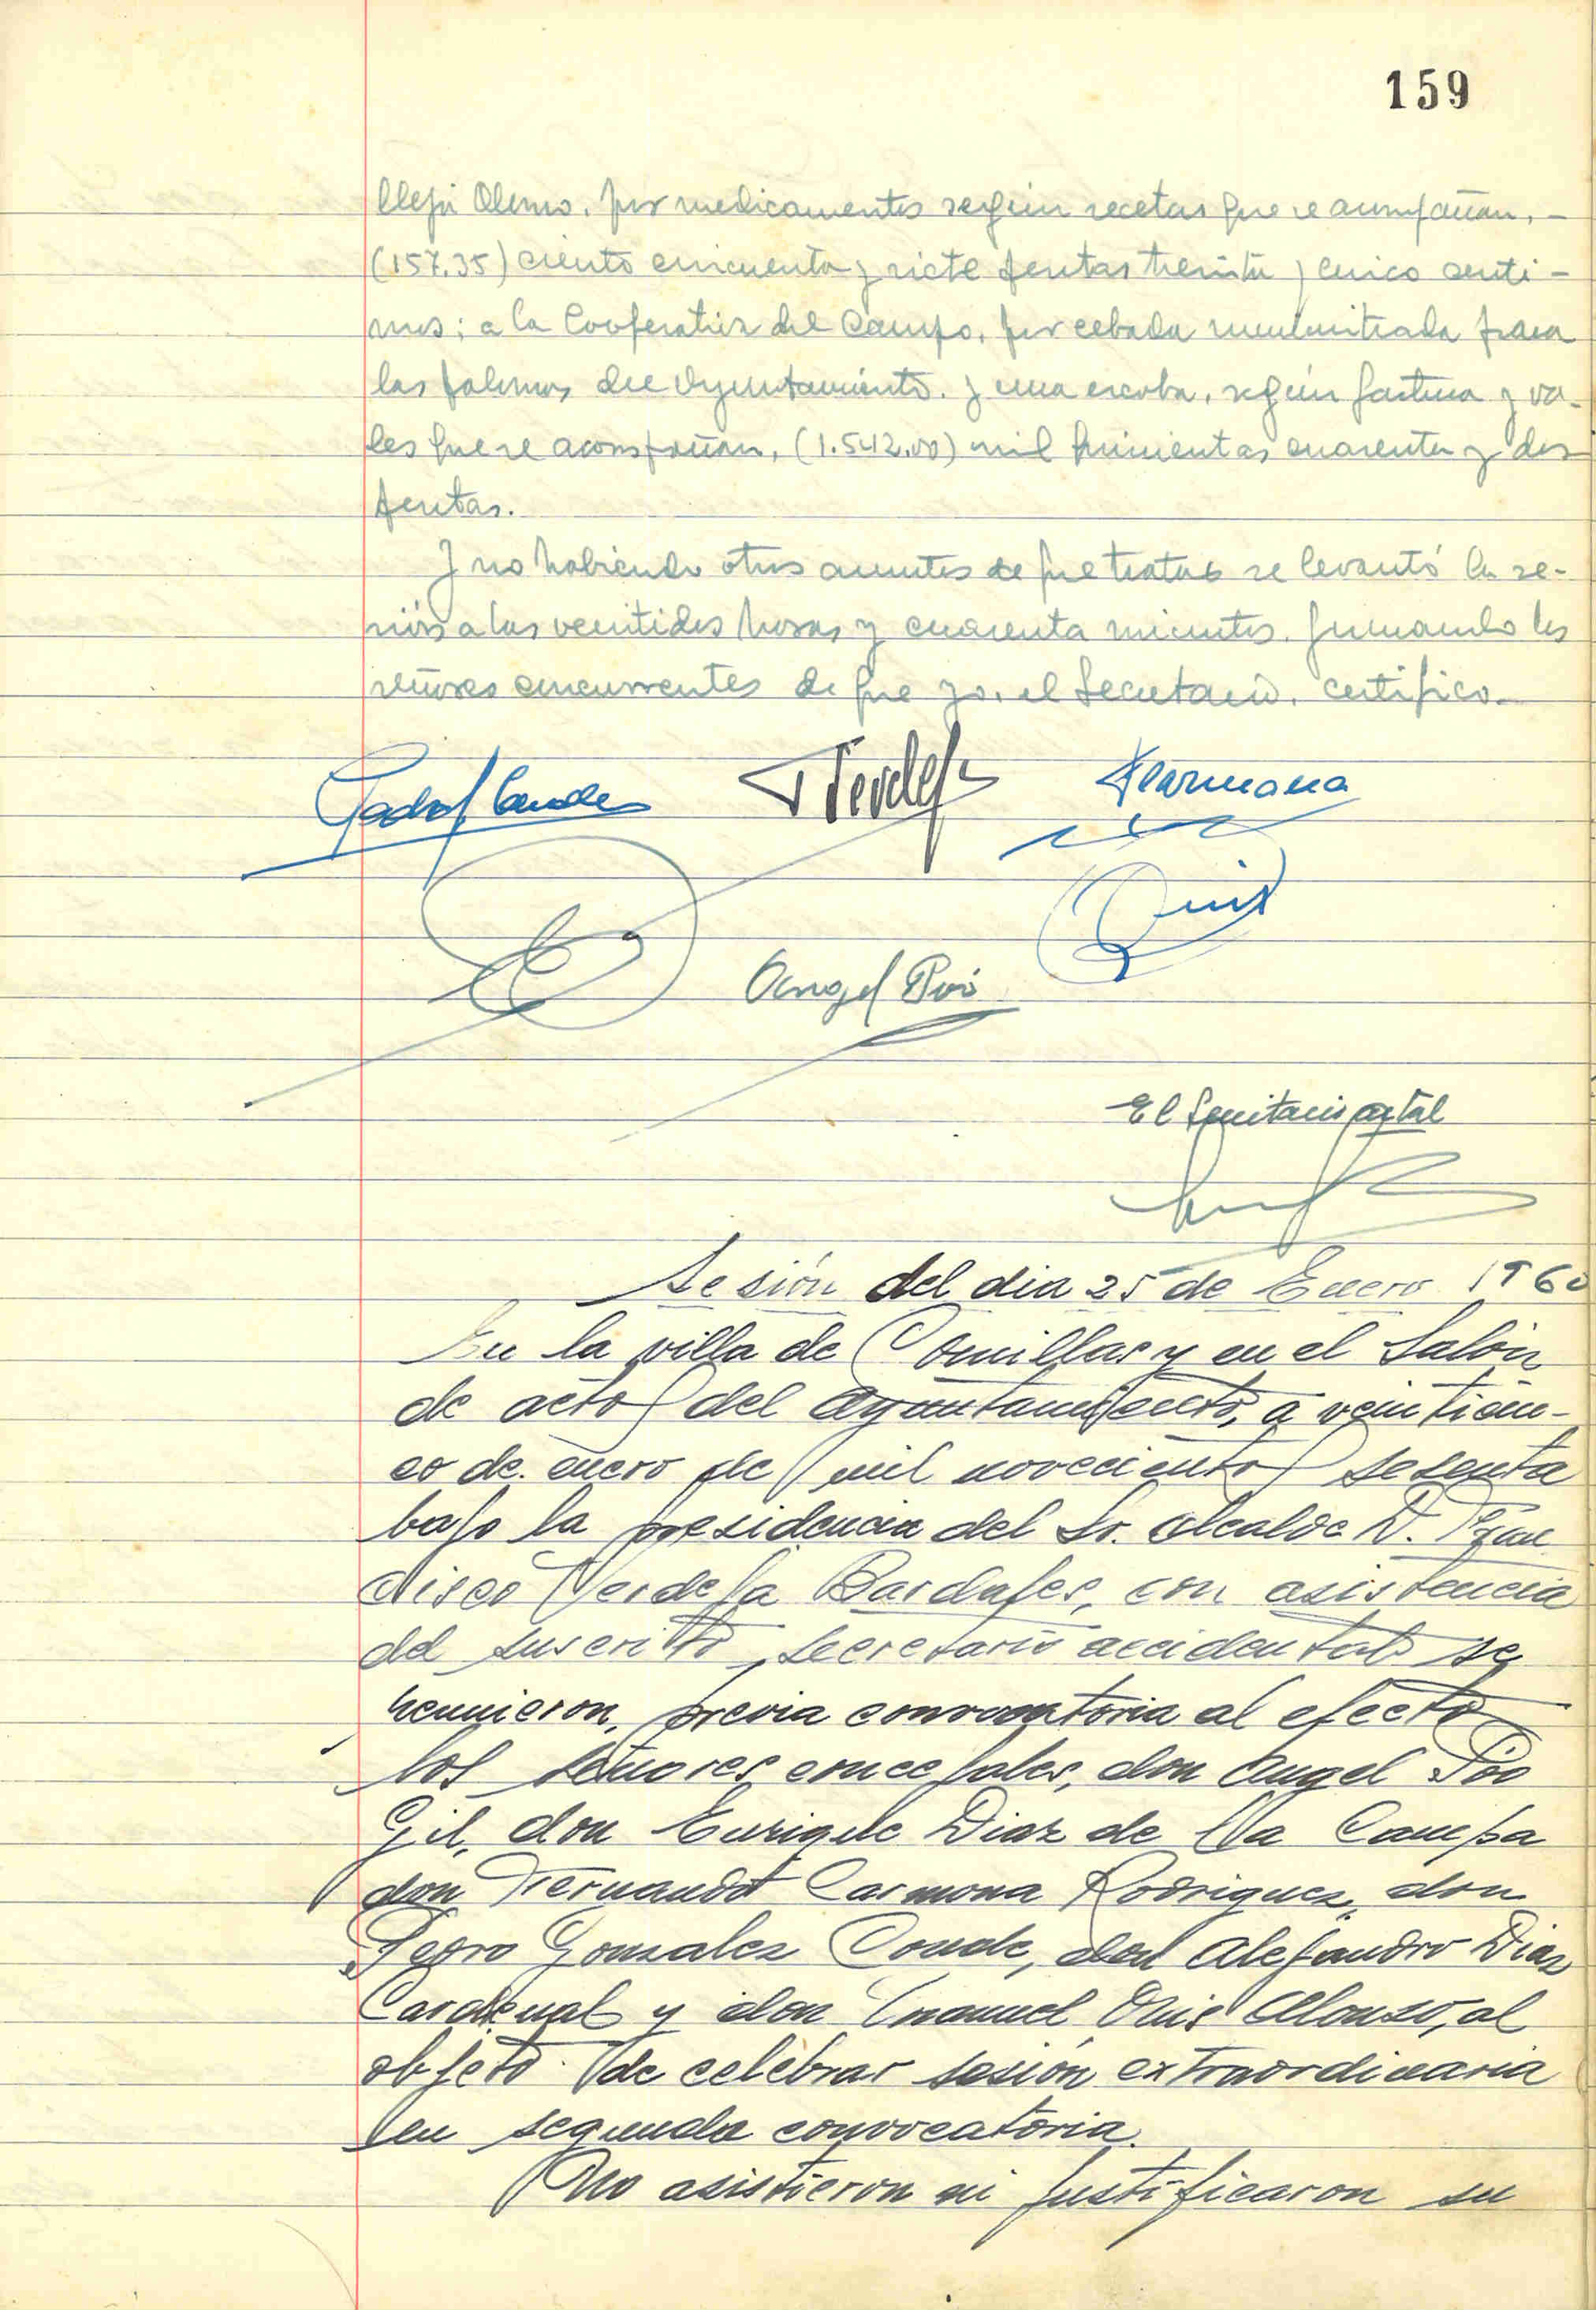 159
por medicamentos según recetas que se acompañan, -
(157,35) ciento cincuenta y siete pesetas treinta y cinco centi-
mos; a la Cooperativa del Campo, por cebada suministrada para
las palomas del Ayuntamiento. y una escoba, según factura y va-
les que se acompañan, (1.542,00) mil quinientas cuarenta y dos
pesetas.
Y no habiendo otros asuntos de que tratar se levantó la se-
sión a las veintidos horas y cuarenta minutos. firmando los
señores concurrentes de que yo, el Secretario, certifico.
Verdeja
FCarmona
Angel Poó
Ruiz
El Secretario actal
Sesión del dia 25 de Enero 1960
En la villa de Comillas y en el Salón
de actos del Ayuntamiento, a veinticin-
co de enero de mil novecientos sesenta
bajo la presidencia del Sr. Alcalde D. Fran
cisco Verdeja Bardales, con asistencia
del suscrito, Secretario accidental se
reunieron, previa convocatoria al efecto
los señores concejales, don Angel Poo
Gil, don Enrique Diaz de la Campa
don Fernando Carmona Rodriguez, don
Pedro Gonzalez Conde, don Alejandro Diaz
Cardenal y don Manuel Ruiz Alonso, al
objeto de celebrar sesión extraordinaria
en segunda convocatoria.
No asistieron ni justificaron su